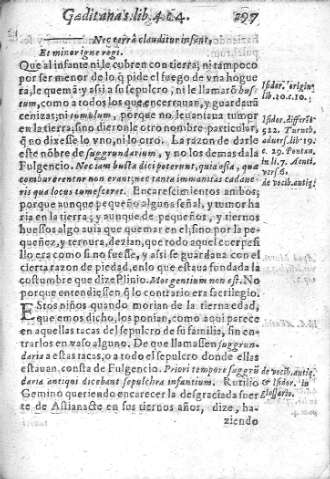 Gaditanas. lib. 4. c. 4. 297
Nec terrâ clauditur infans,
Et minor igne rogi.
Que al infante ni le cubren con tierra; ni tampoco
por ser menor de lo q̃ pide el fuego de vna hogue
ra, le quemã; y assi a su sepulcro, ni le llamarõ bus
tum, como a todos los que encerrauan, y guardauã
cenizas; ni tumulum, porque no leuantaua tumor
en la tierra, sino dieronle otro nombre particular,
q̃ no dixesse lo vno, ni lo otro. La razon de darle
este nõbre de suggrundarium, y no los demas da la
Fulgencio. Nec tam busta dici poterunt, quia ossa, quæ
comburerentur non erant; nec tanta immanitas cadaue
ris qua locus tumesceret. Encarescimientos ambos;
porque aunque pequeño alguna señal, y tumor ha
zia en la tierra; y aunque de pequeños, y tiernos
huessos algo auia que quemar en el; sino por la pe
queñez, y ternura, dezian, que todo aquel cuerpesi
llo era como si no fuesse, y assi se guardaua con el
cierta razon de piedad, en lo que estaua fundada la
costumbre que dize Plinio. Mos gentium non est. No
porque entendiessen q̃ lo contrario era sacrilegio.
Estos niños quando morian de la tierna edad,
que emos dicho, los ponian, como aqui parece
en aquellas tacas del sepulcro de su familia, sin en
trarlos en vaso alguno. De que llamassen suggrun-
daria a estas tacas, o a todo el sepulcro donde ellas
estauan, consta de Fulgencio. Priori tempore suggrũ
daria antiqui dicebant sepulchra infantium. Rutilio
Gemino queriendo encarecer la desgraciada suer
te de Astianacte en sus tiernos años, dize, ha-
ziendo
Isidor. origin
lib. 10. c. 10.
Isidor. differẽ
522. Turneb.
aduers. lib. 19.
c. 29. Pontan.
in li. 7. Aenei.
vers. 6.
de vocib. antiq.
de vocib. antiq.
& Isidor. in
glossario.